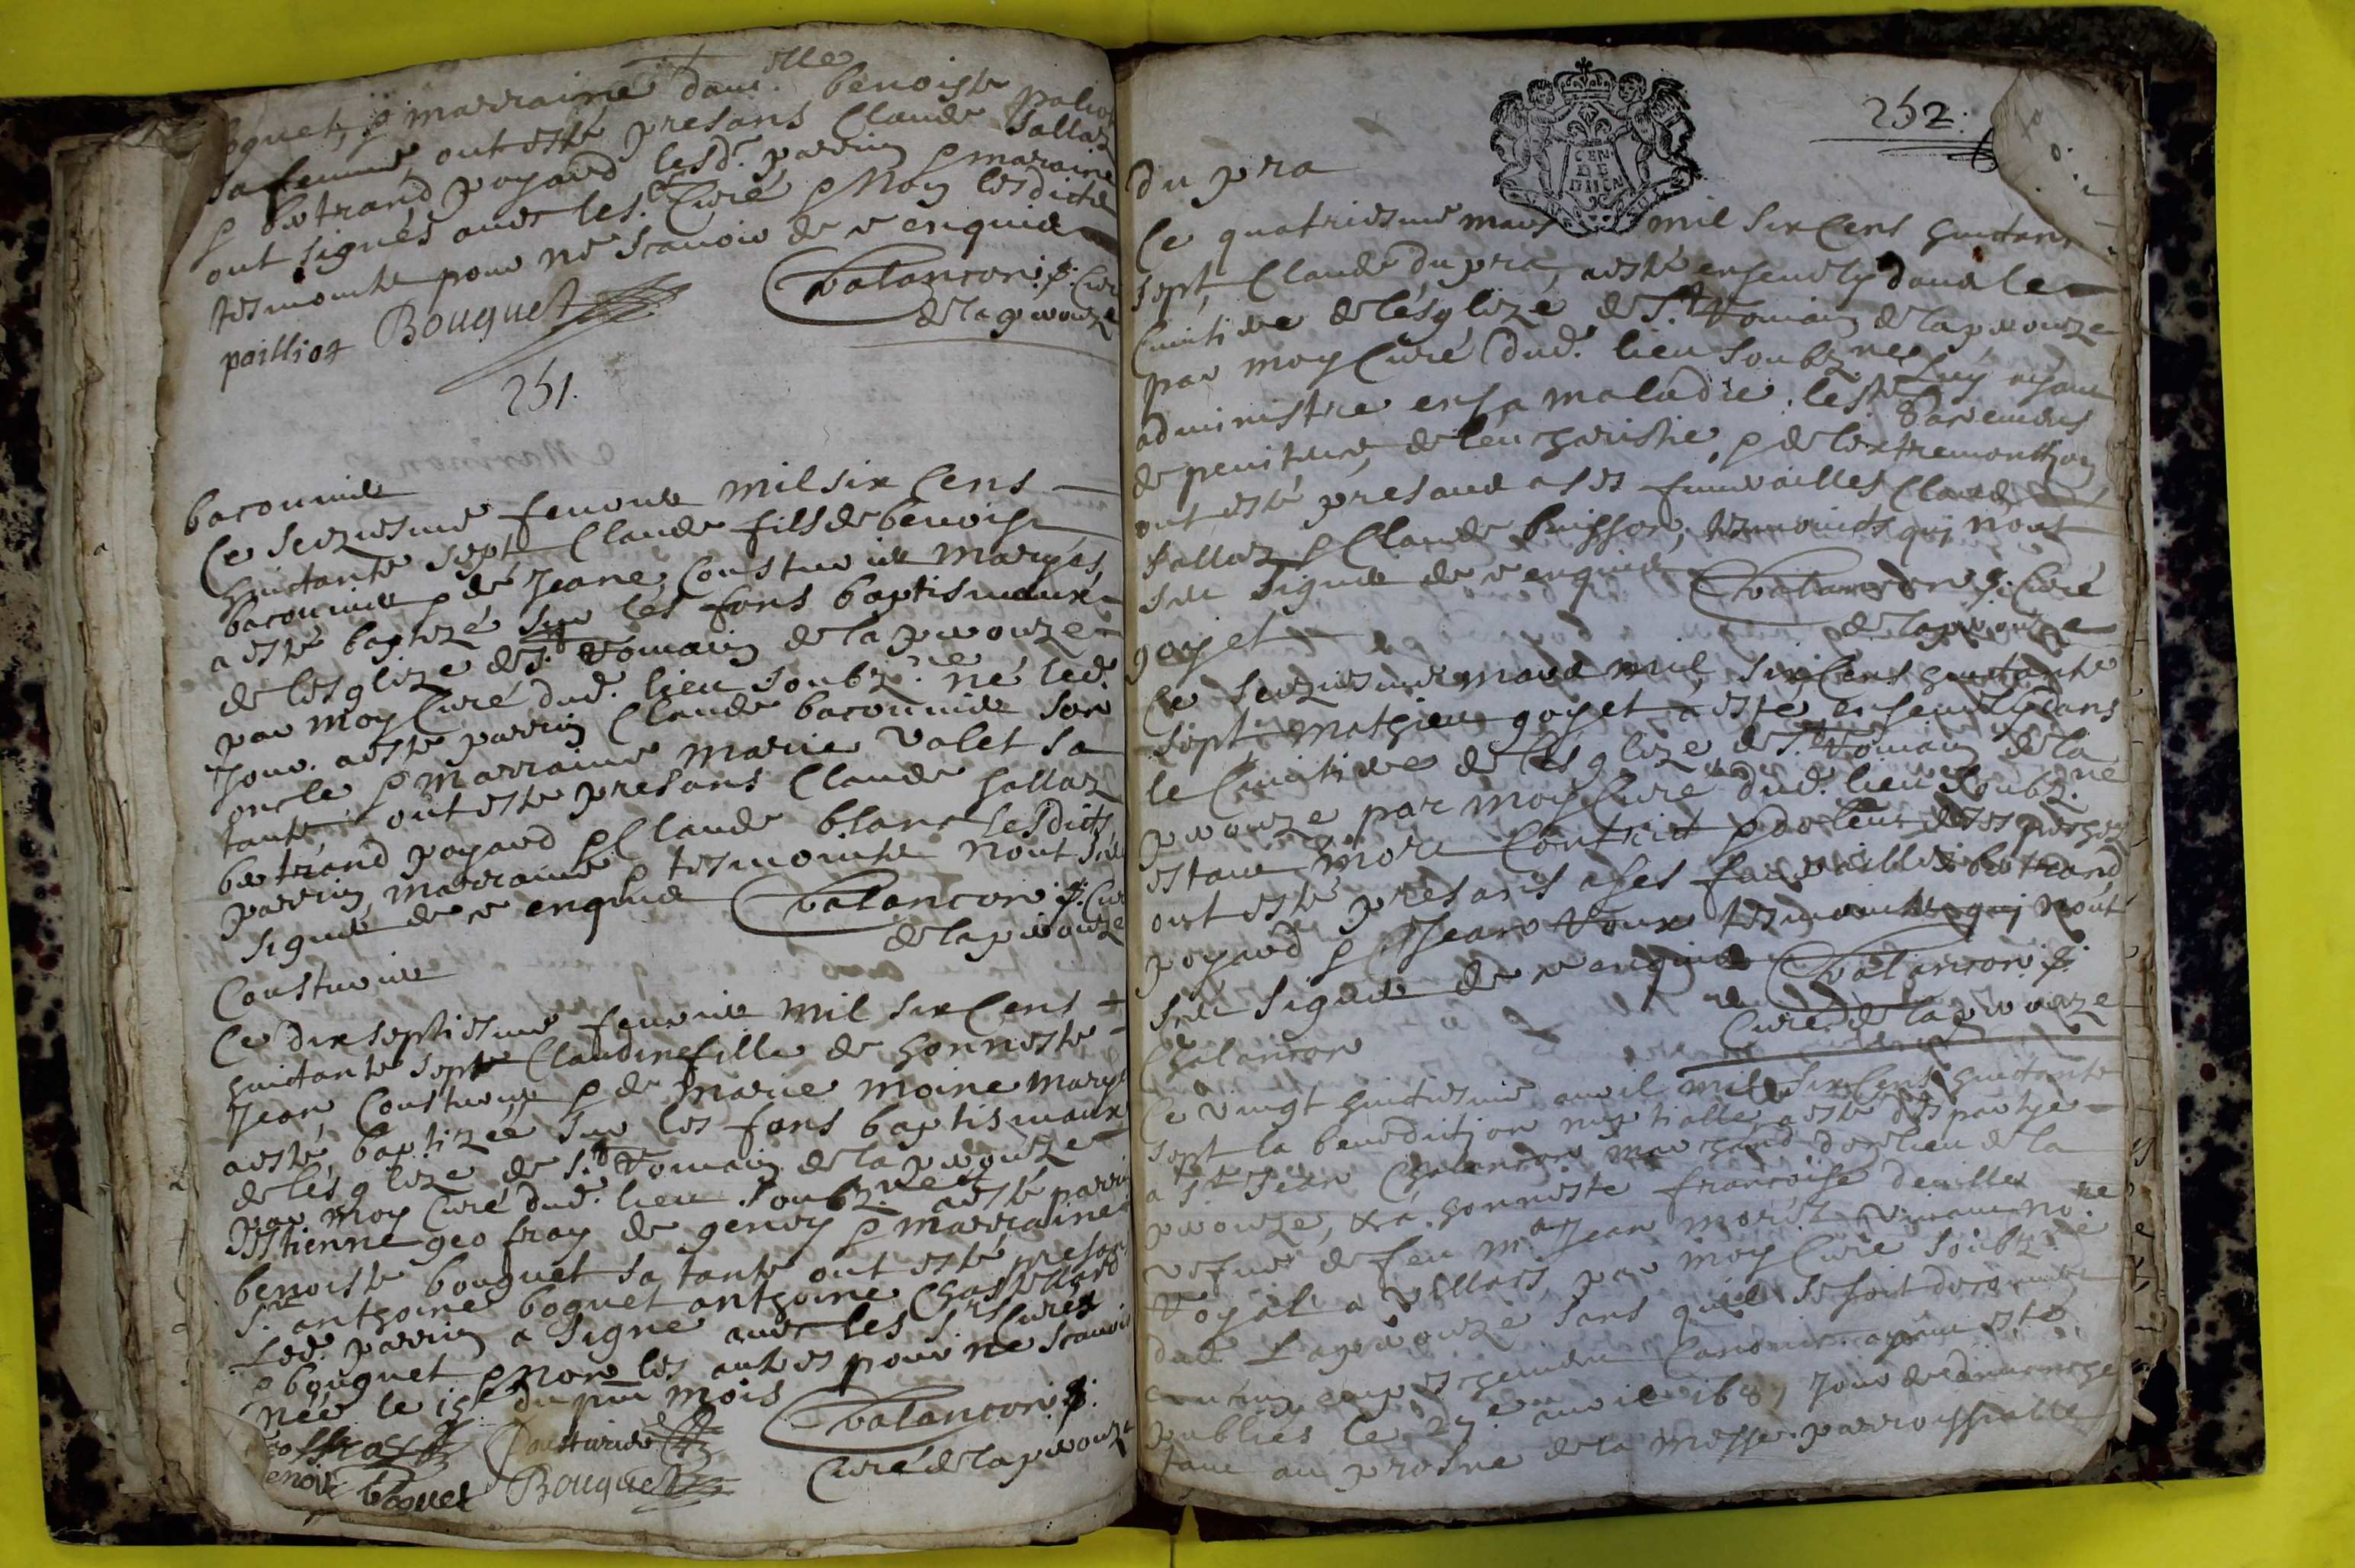 boguet, & marraine dam.elle benoiste paliot
sa femme, ont esté presans Claude Sallaz
& bertrand poyard lesd. parrin & maraine
ont signés avec les. Curé & Non lesdicts
tesmoints pour ne scavoir de ce enquis
balancon p. Cur
de la perouze
pailliot Bouquet
251.
bacounier
Ce seziesme fevrier mil six Cens
huictante sept Claude fils de benoist
bacounier & de Jeane Cousturier maryes
a esté baptizé sur les fons baptismaux
de lesglize de St Romain de la perouze
par moy Curé dud. lieu soubz.né né led.
Jour. a esté parrin Claude bacounier son
oncle & marraine marie valet sa
tante ont esté presans Claude sallaz
bertrand poyard & Claude blanc lesdicts
parrin, marraine & tesmoints nont sceu
signer de ce enquis balancon p. Cur
de la perouze
Cousturier
Ce dix septiesme fevrier mil six Cens
huictante sept Claudine fille de honneste
Jean Cousturier & de marie moine maryes
a esté baptizée sur les fons baptismaux
de lesglize de St Romain de la perouze
par moy Curé dud. lieu soubz.né a esté parrin
Estienne geofray de & marraine
benoiste bouguet sa tante ont esté presans
Sr. anthoine boguet anthoine Chastellard
Led. parrin a signé avec les Srs Curés
& bouguet & Non les autres pour ne scavoir
née le du pnt mois
balancon p.
Curé de la perouze
Cousturier
boguet Bouquet
252.
du pra
Ce quatriesme mars mil six Cens huictante
sept, Claude du pra, a esté ensevely dans le
Cimitiere de lésglize de St. Romain de la perouze
par moy Curé dud. lieu soubz.né Luy ayant
administre en sa maladie, les Sts Sacremens
de penitence, de leucharistie, & de lextremonction
ont esté presans a ses funerailles Claude
Sallaz & Claude buisson, tesmoints qui nont
sceu signer de ce enquis balancon p. Curé
de la perouze
goyet
Ce seziesme mars mil six Cens huictante
sept mathieu goyet a esté ensevely dans
le Cimitiere de lesglize de St. Romain de la
perouze par moy Curé dud. lieu Soubz.né
estant mort contrict & doleur de ses pechez
ont esté presans a ses funerailles bertrand
poyard & Jean Roux tesmoints qui nont
sceu signer de ce enquis balancon p.
Curé de la perouze
Chalancon
Ce vingt huictiesme avril mil six Cens huictante
sept la benediction nuptialle a esté despartye
a Sr Jean Chalancon marchand de lieu de la
perouze, & a honneste francoise deville
vefve de feu Me Jean moret vivant no.re
Royal a villars, par moy Curé soubz.né
dud. Laperouze sans quil se soit descouvert
aucun empeschement Canonic. ayant esté
publiés le 27e avril 1687 Jour de dimanche
tant au prosne de la messe parroissialle